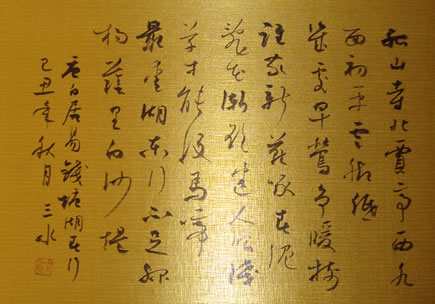 孤山寺北賈亭西水
面初平雲腳低
幾處早鶯爭暖樹
誰家新燕啄春泥
亂花漸欲迷人眼淺
草才能沒馬蹄
最愛湖東行不足綠
楊蔭里白沙堤
唐白居易錢塘湖春行
己丑年秋月 三水